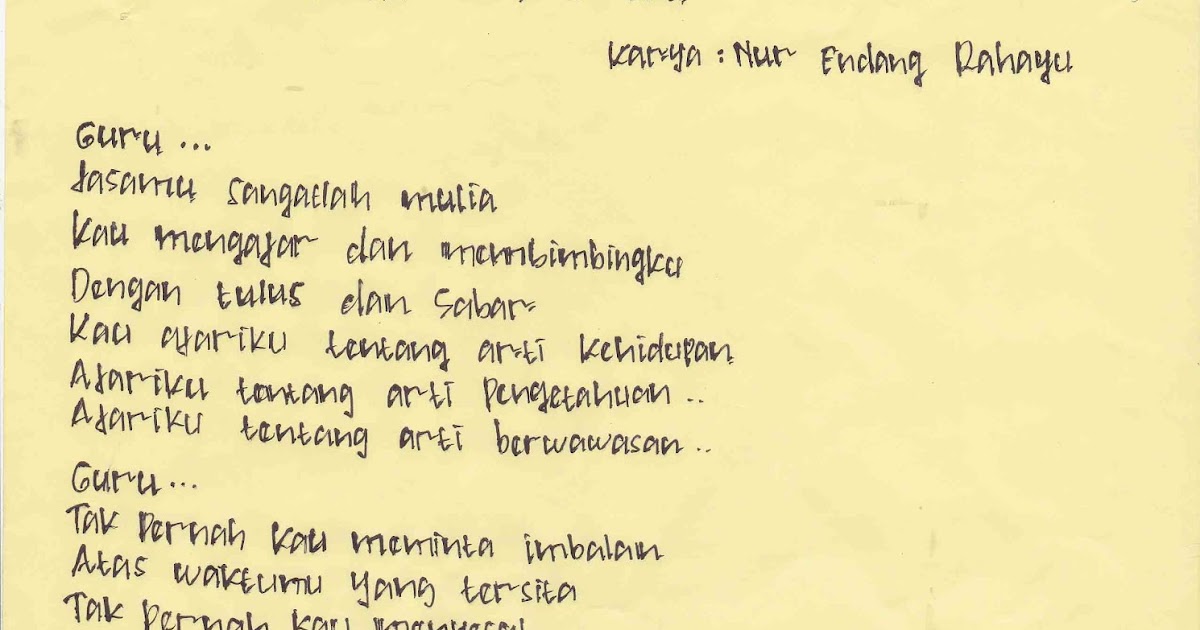 Karya : Nur Endang Rahayu
Guru ...
Jasamu sangatlah mulia
Kau mengajar dan membimbingku
Dengan tulus dan sabar
Kau ajariku tentang arti kehidupan
Ajariku tentang arti pengetahuan ..
Ajariku tentang arti berwawasan ..
Guru ...
Tak pernah kau meminta imbalan
Atas waktumu yang tersita
Tak pernah kau